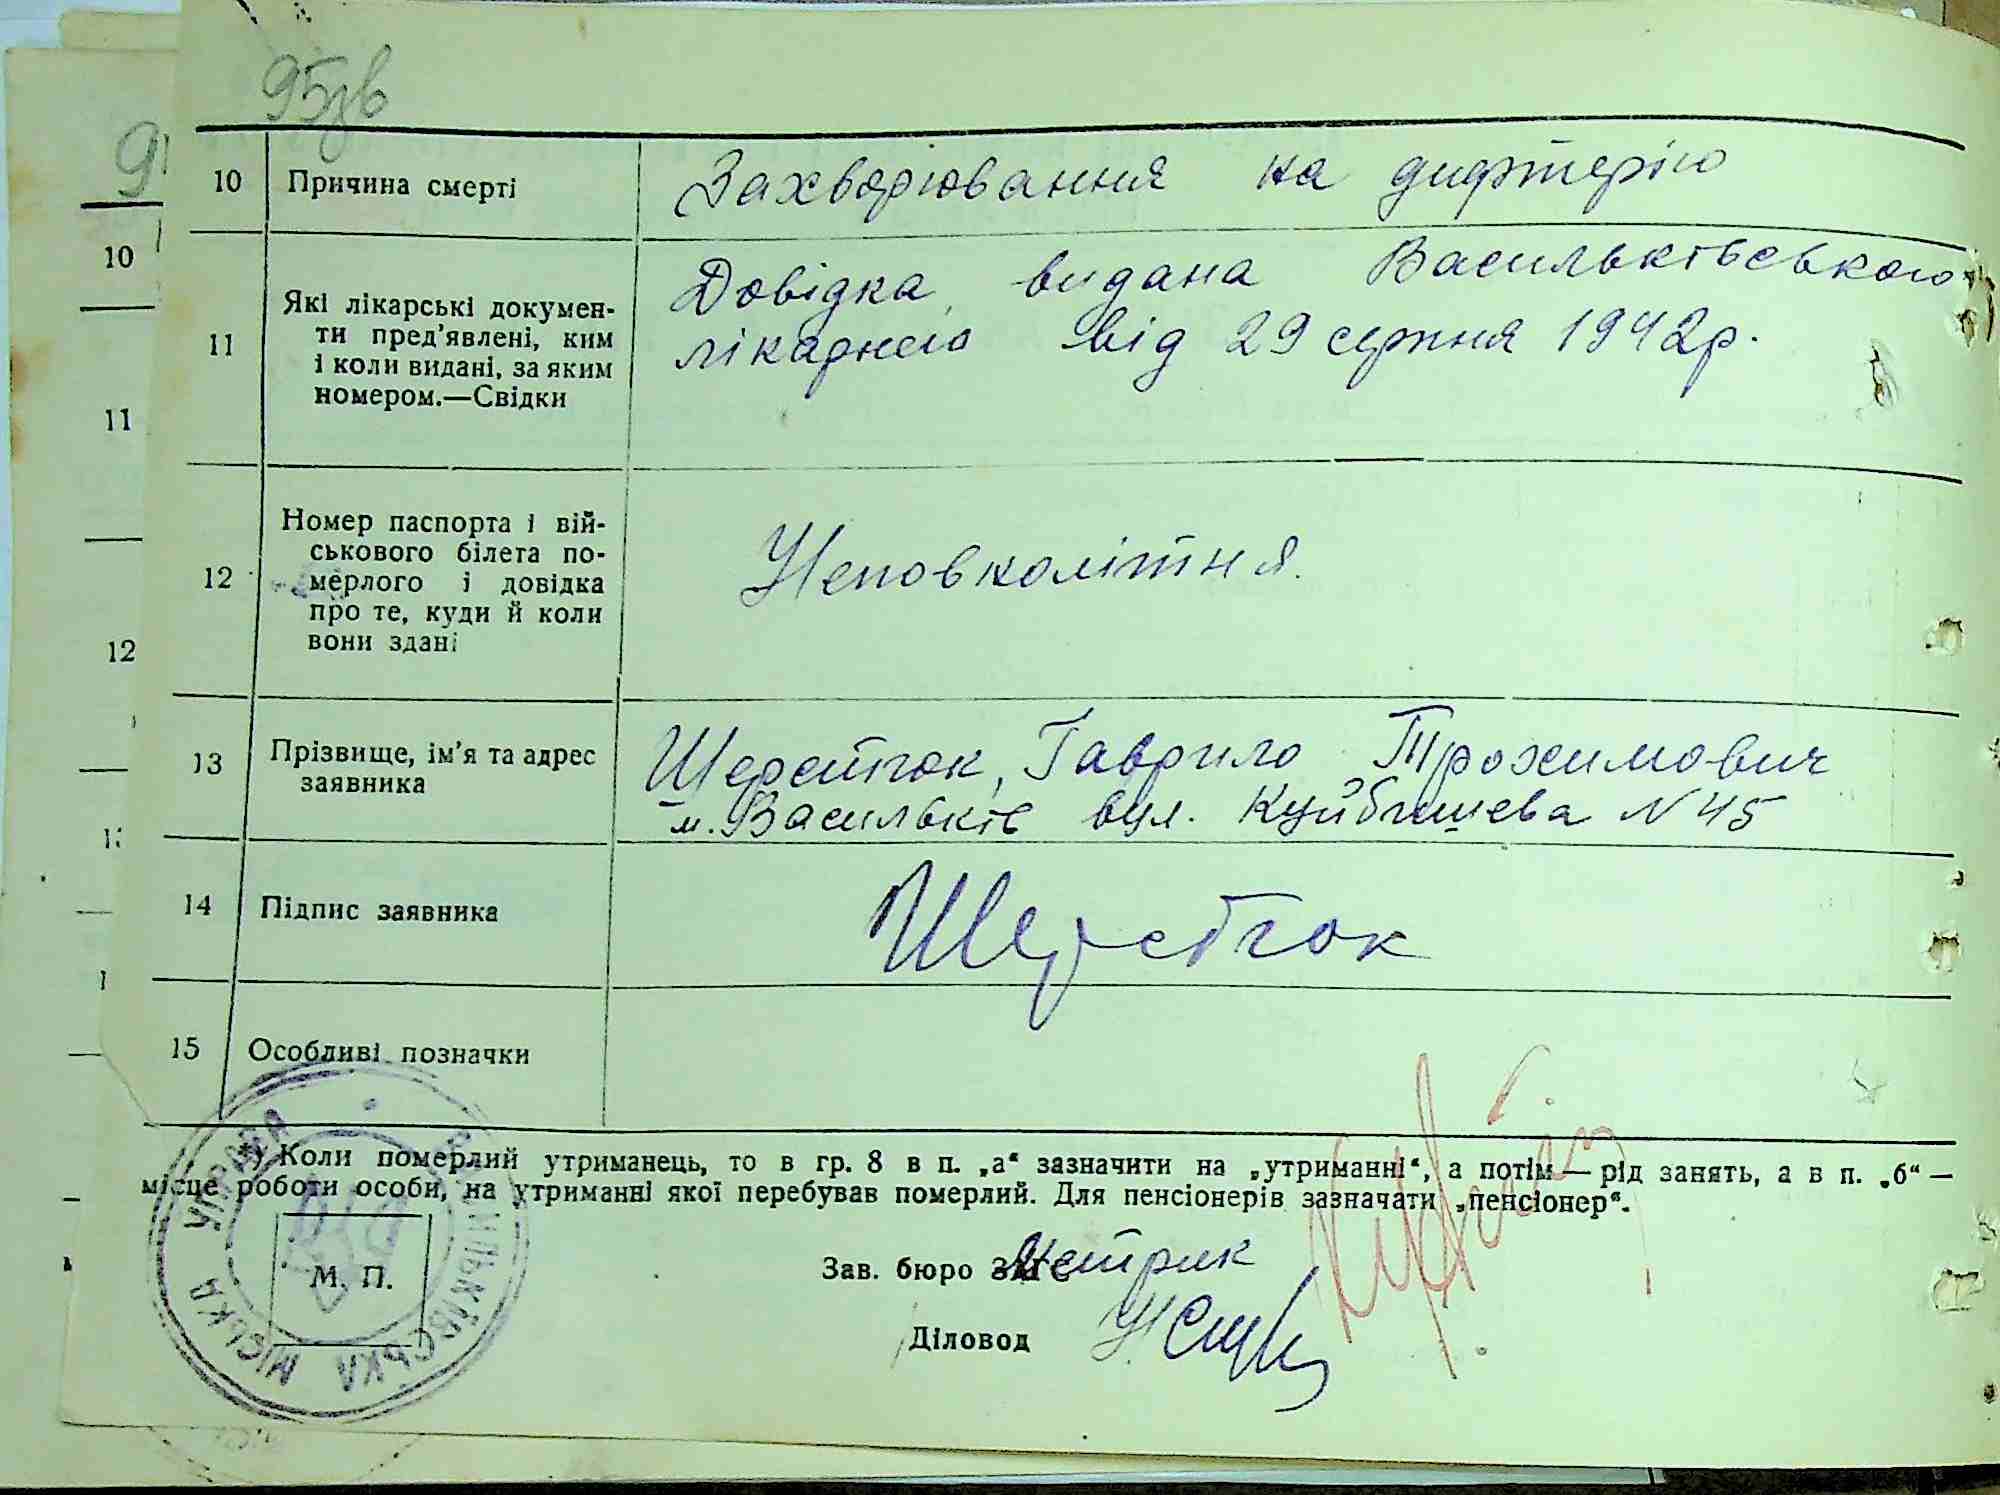 95зв
10 Причина смерті Захворювання на дифтерію
11 Які лікарські документи пред'явлені, ким і коли видані, за яким номером.—Свідки
Довідка видана Васильківською
лікарнею від 29 серпня 1942р.
12 Номер паспорта і вій-
ського білета по-
мерлого і довідка
про те, куди й коли
вони здані
Неповнолітня.
13 Прізвище, ім'я та адрес
заявника
Шерстюк, Гаврило Трохимович
м. Васильків вул. Куйбишева N 45
14 Підпис заявника Шерстюк
15 Особливі позначки
*) Коли померлий утриманець, то в гр. 8 в п. „а“ зазначити на „утриманні“, а потім — рід занять, а в п. „б“ —
місце роботи особи, на утриманні якої перебував померлий. Для пенсіонерів зазначати „пенсіонер“.
Зав. бюро ЗАГС
М. П.
Діловод
ВАСИЛЬКІВСЬКА МІСЬКА УПРАВА
10
11
12